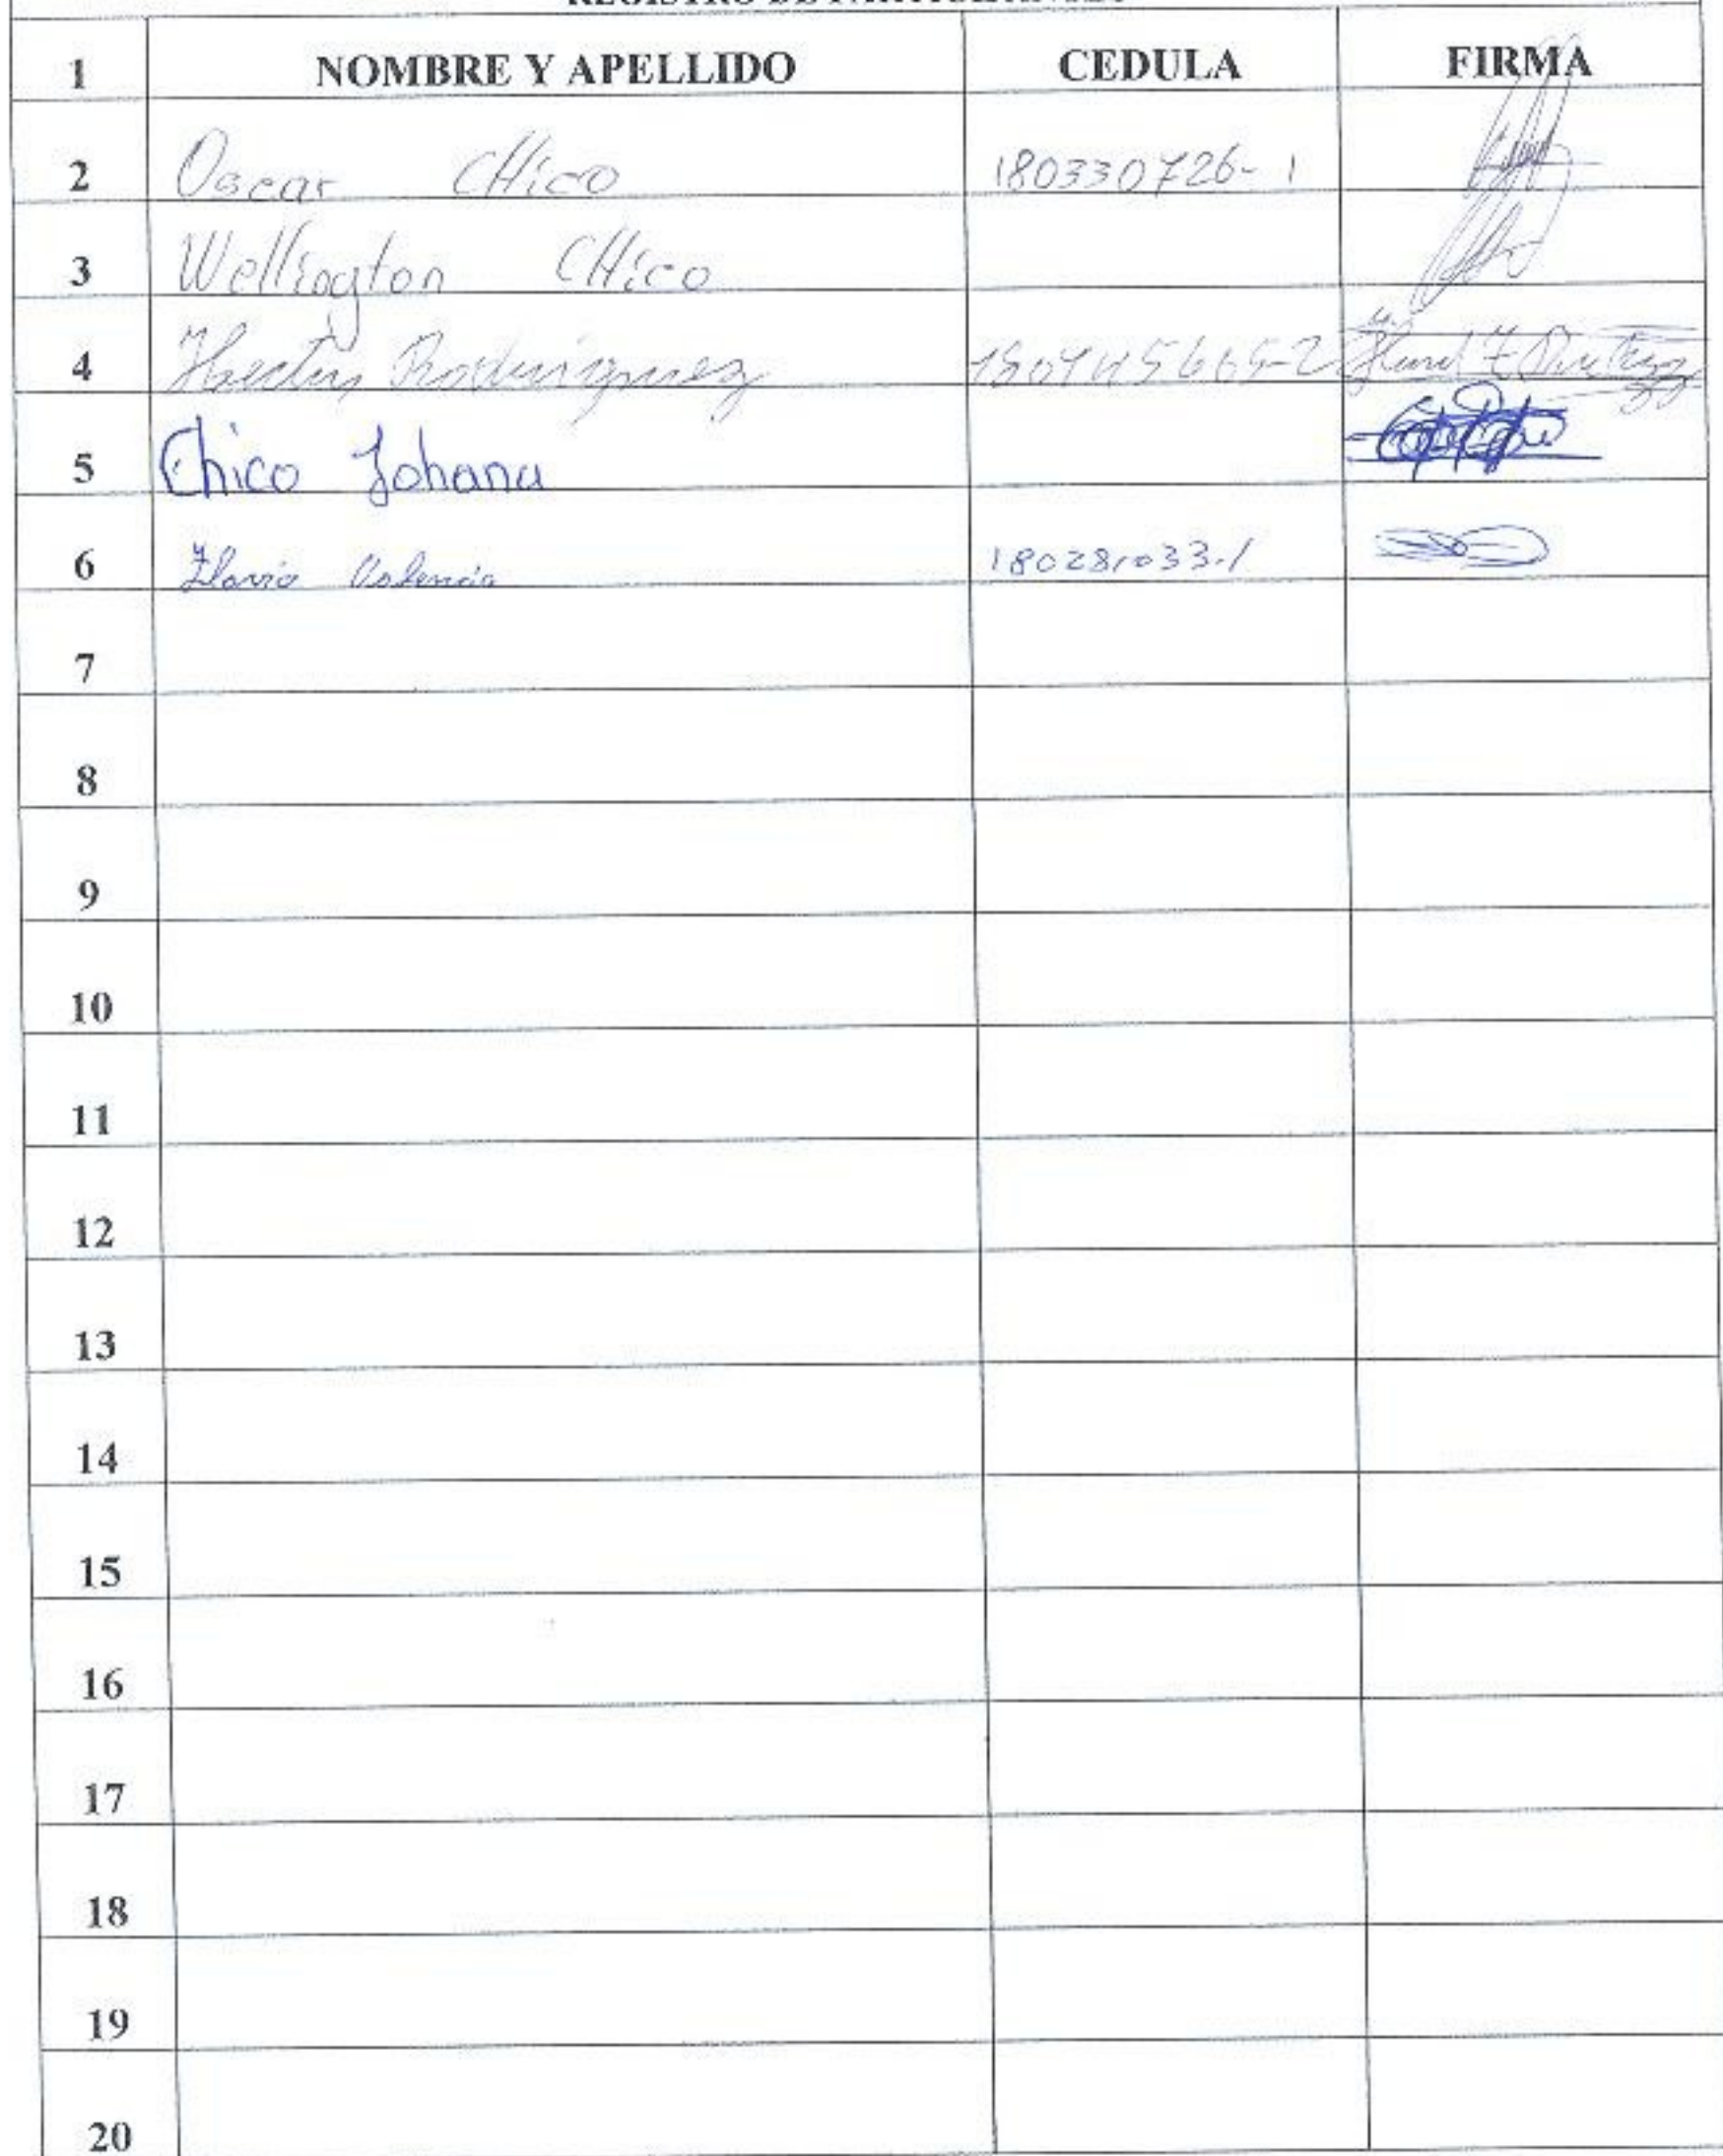 1 NOMBRE Y APELLIDO CEDULA FIRMA
2 Oscar CHico 180330726-1
3 Wellington CHico
4 Rodriguez
5 Chico Johana
6 Flavio Valencia 180281033-1
7
8
9
10
11
12
13
14
15
16
17
18
19
20